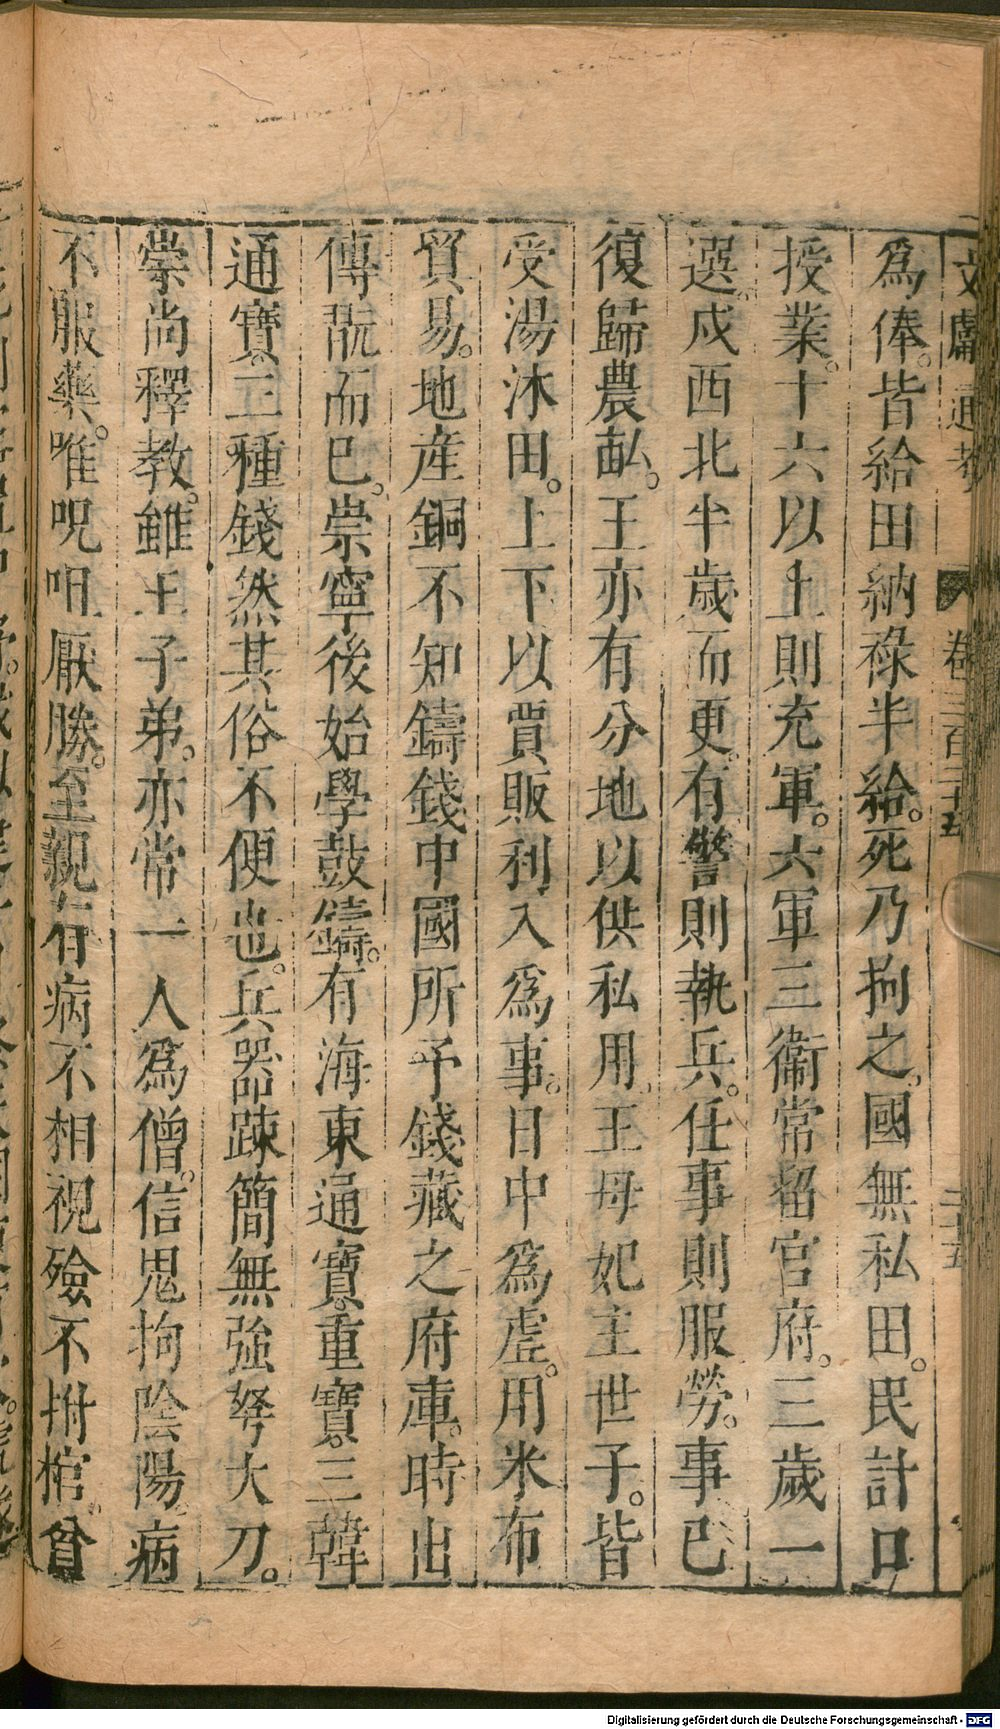 文獻通考 卷三百二十五 二十五
爲俸。皆給田納祿半給。死乃拘之。國無私田。民計口
授業。十六以上則充軍。六軍三衞常留官府。三歲一
選。戍西北半歲而更。有警則執兵。任事則服勞。事已
復歸農畝。王亦有分地以供私用。王母妃主世子。皆
受湯沐田。上下以賈販利入爲事。日中爲虛。用米布
貿易。地産銅不知鑄錢中國所予錢藏之府庫。時出
傳翫而已。崇寧後始學鼓鑄。有海東通寶。重寶。三韓
通寶。三種錢然其俗不便也。兵器疎簡無強弩大刀。
崇尚釋教。雖王子弟。亦常一人爲僧。信鬼拘陰陽病
不服藥。唯呪咀厭勝。至親有病不相視殮不拊棺。貧
Digitalisierung gefördert durch die Deutsche Forschungsgemeinschaft - DFG